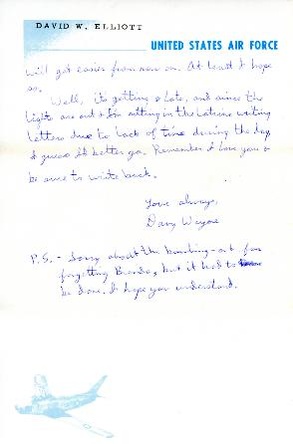 DAVID W. ELLIOTT
UNITED STATES AIR FORCE
will get easier from now on. At least I hope
so.
Well, it's getting late, and since the
lights are out & I'm sitting in the Latrine writing
letters due to lack of time during the day,
I guess I'd better go. Remember I love you &
be sure to write back.
Love always,
Davy Wayne
P.S. - Sorry about the bawling-out for
forgetting Brenda, but it had to
be done. I hope you understand.